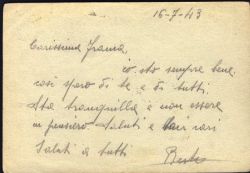 16-7-43
Carissima Franca,
io sto sempre bene
così spero di te e di tutti.
Sta tranquilla e non essere
in pensiero. Saluti e cari
Saluti a tutti